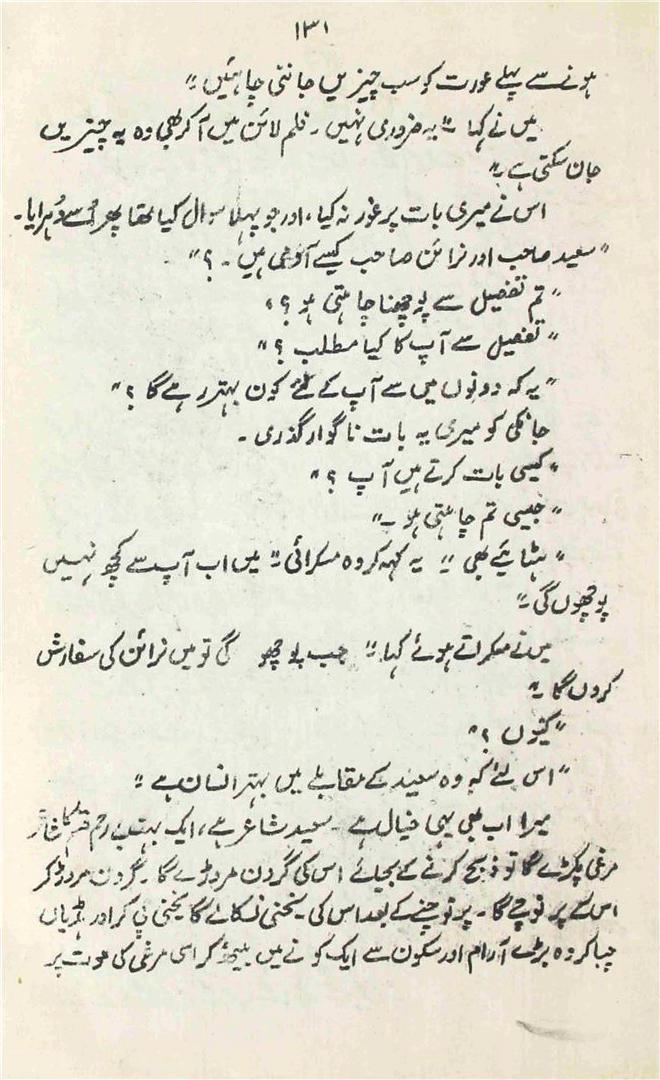 ۱۳۱
ہونے سے پہلے عورت کو سب چیزیں جاننی چاہئیں ۔"
میں نے کہا ۔" یہ ضروری نہیں ۔ فلم لائن میں آکر بھی وہ یہ چیزیں
جان سکتی ہے ۔"
اس نے میری بات پر غور نہ کیا ، اور جو پہلا سوال کیا تھا پھر اُسے دُہرایا۔
"سعید صاحب اور نرائن صاحب کیسے آدمی ہیں ۔ ؟"
"تم تفصیل سے پوچھنا چاہتی ہو ؟"
"تفصیل سے آپ کا کیا مطلب ؟"
"یہ کہ دونوں میں سے آپ کے لئے کون بہتر رہے گا ؟"
جانکی کو میری یہ بات ناگوار گذری ۔
"کیسی بات کرتے ہیں آپ ؟"
"جیسی تم چاہتی ہو ۔"
"ہٹائیے بھی ۔" یہ کہہ کر وہ مسکرائی ۔" میں اب آپ سے کچھ نہیں
پوچھوں گی ۔"
میں نے مسکراتے ہوئے کہا ۔" جب پوچھو گی تو میں نرائن کی سفارش
کروں گا ۔"
"کیوں ؟"
"اس لئے کہ وہ سعید کے مقابلے میں بہتر انسان ہے ۔"
میرا اب بھی یہی خیال ہے ۔ سعید شاعر ہے ، ایک بہت بے رحم قسم کا شاعر
مرغی پکڑے گا تو ذبح کرنے کے بجائے اس کی گردن مروڑے گا ۔ گردن مروڑ کر
اس کے پر نوچے گا ۔ پر نوچنے کے بعد اس کی یخنی نکالے گا یخنی پی کر اور ہڈیاں
چبا کر وہ بڑے آرام اور سکون سے ایک کونے میں بیٹھ کر اسی مرغی کی موت پر